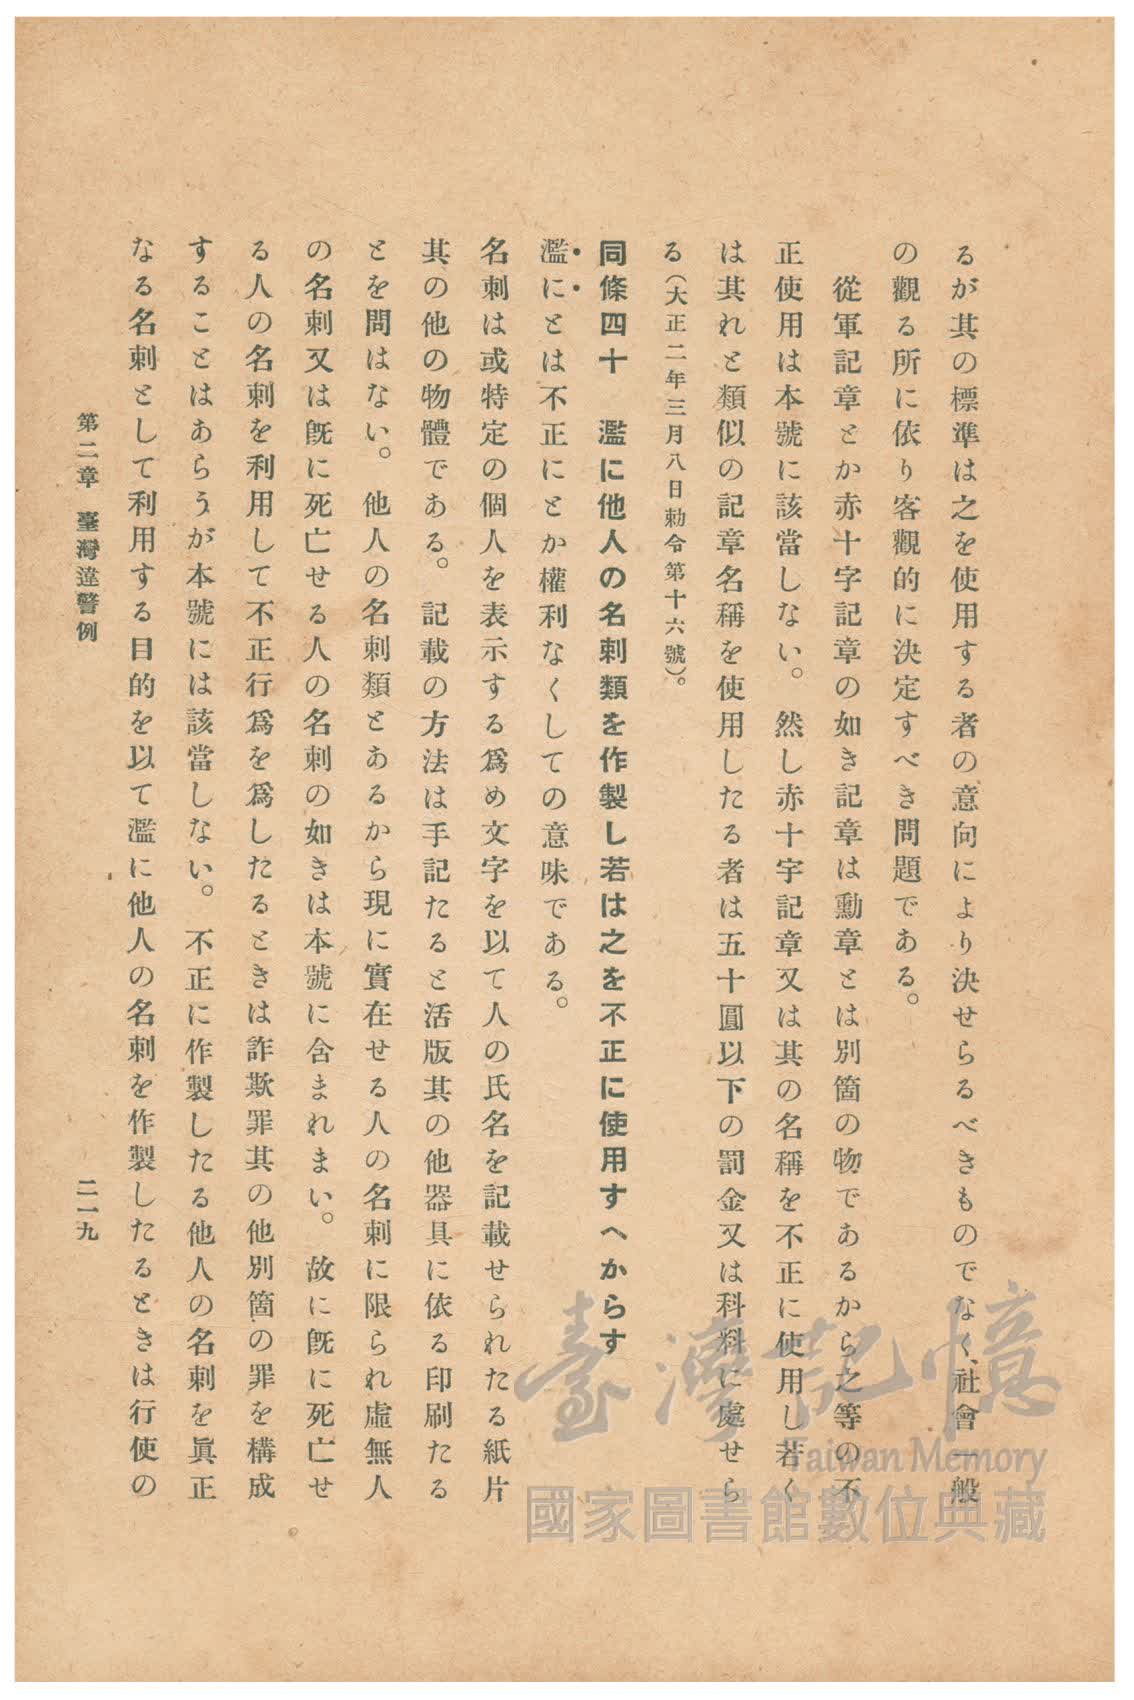 るが其の標準は之を使用する者の意向により決せらるべきものでなく、社會一般
の觀る所に依り客觀的に決定すべき問題である。
從軍記章とか赤十字記章の如き記章は勳章とは別箇の物であるから之等の不
正使用は本號に該當しない。然し赤十字記章又は其の名稱を不正に使用し若く
は其れと類似の記章名稱を使用したる者は五十圓以下の罰金又は科料に處せら
る(大正二年三月八日勅令第十六號)。
同條四十　濫に他人の名刺類を作製し若は之を不正に使用すへからす
濫にとは不正にとか權利なくしての意味である。
名刺は或特定の個人を表示する爲め文字を以て人の氏名を記載せられたる紙片
其の他の物體である。記載の方法は手記たると活版其の他器具に依る印刷たる
とを問はない。他人の名刺類とあるから現に實在せる人の名刺に限られ虛無人
の名刺又は旣に死亡せる人の名刺の如きは本號に含まれまい。故に旣に死亡せ
る人の名刺を利用して不正行爲を爲したるときは詐欺罪其の他別箇の罪を構成
することはあらうが本號には該當しない。不正に作製したる他人の名刺を眞正
なる名刺として利用する目的を以て濫に他人の名刺を作製したるときは行使の
第二章　臺灣違警例
二一九
臺灣記憶
Taiwan Memory
國家圖書館數位典藏